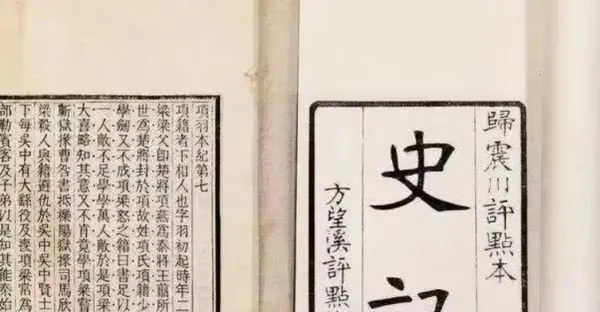 歸震川評點本
史記
方望溪評點
項羽本紀第七
項籍者下相人也字羽初起時年二
梁梁父即楚將項燕爲秦將王翦所
世爲楚將封於項故姓項氏項籍少
學劍又不成項梁怒之籍曰書足以
一人敵不足學學萬人敵於是項梁
大喜略知其意又不肯竟學項梁嘗
蘄獄掾曹咎書抵櫟陽獄掾司馬欣
梁殺人與籍避仇於吳中吳中賢士
下每吳中有大繇役及喪項梁常爲
部勒賓客及子弟以是知其能秦始